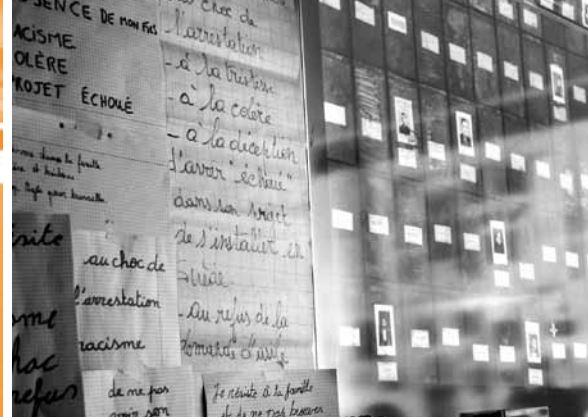 SENCE DE MON FILS
ACISME
OLÈRE
ROJET ÉCHOUÉ
au choc de
l'arrestation
- à la tristesse
- à la colère
- à la déception
d'avoir "échoué"
dans son projet
de s'installer en
Suède
- au refus de la
demande d'asile
dans la famille
au choc de
l'arrestation
racisme
de ne pas
avoir son
Je résiste à la famille
et de ne pas trouver